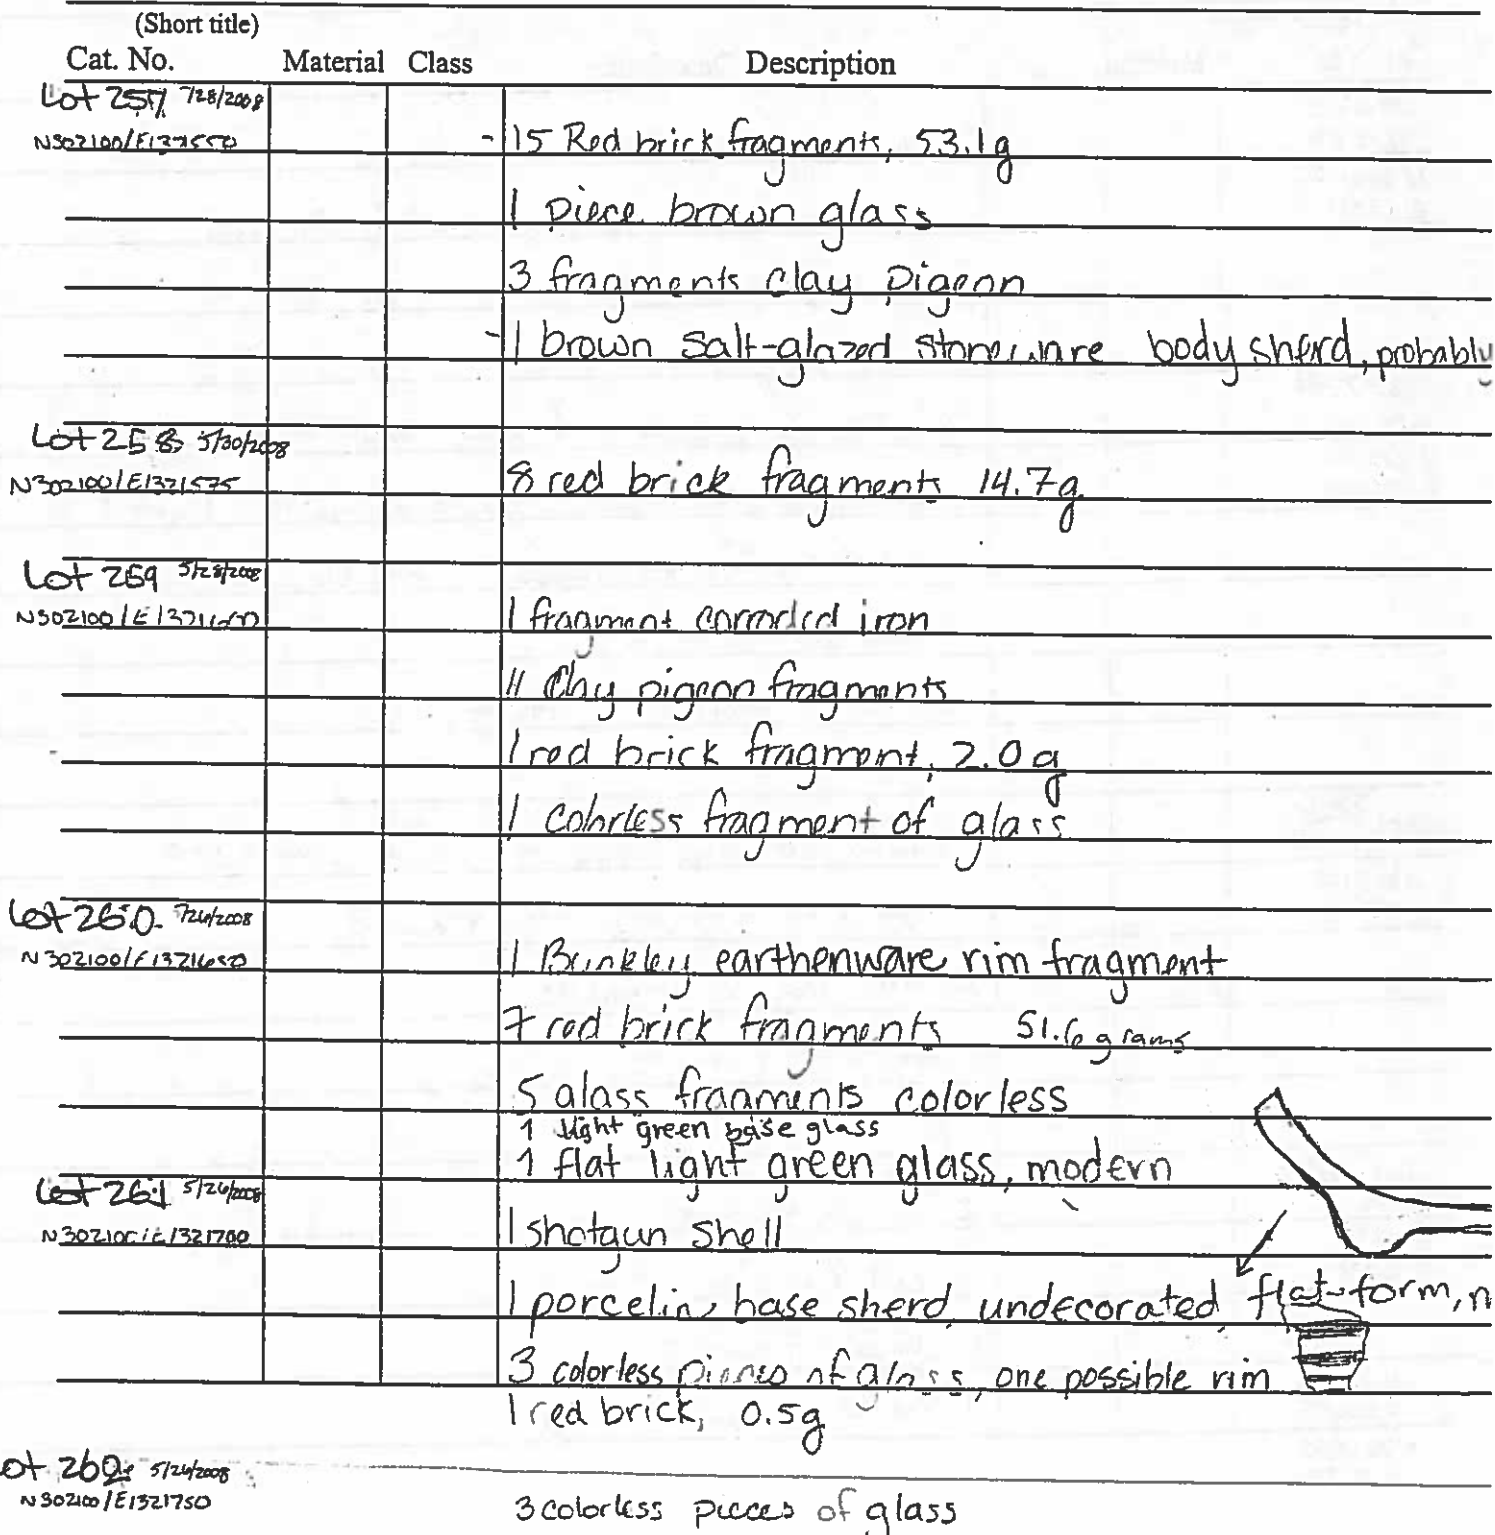 (Short title)
Cat. No. Material Class Description
Lot 257 7/28/2008
N302100/E1321550 - 15 Red brick fragments, 53.1g
1 piece brown glass
3 fragments clay pigeon
- 1 brown salt-glazed stoneware body sherd, probably
Lot 258 5/30/2008
N302100/E1321575 8 red brick fragments 14.7g
Lot 259 5/28/2008
N302100/E1321600 1 fragment corroded iron
11 Clay pigeon fragments
1 red brick fragment, 2.0g
1 colorless fragment of glass
Lot 260
N302100/E1321650 1 earthenware rim fragment
7 red brick fragments 51.6 grams
5 glass fragments colorless
1 light green base glass
1 flat light green glass, modern
Lot 261 5/26/2008
N302100/E1321700 1 shotgun shell
1 porcelin, base sherd, undecorated, flat-form, n
3 colorless pieces of glass, one possible rim
1 red brick, 0.5g
ot 262 5/24/2008
N302100/E1321750 3 colorless pieces of glass